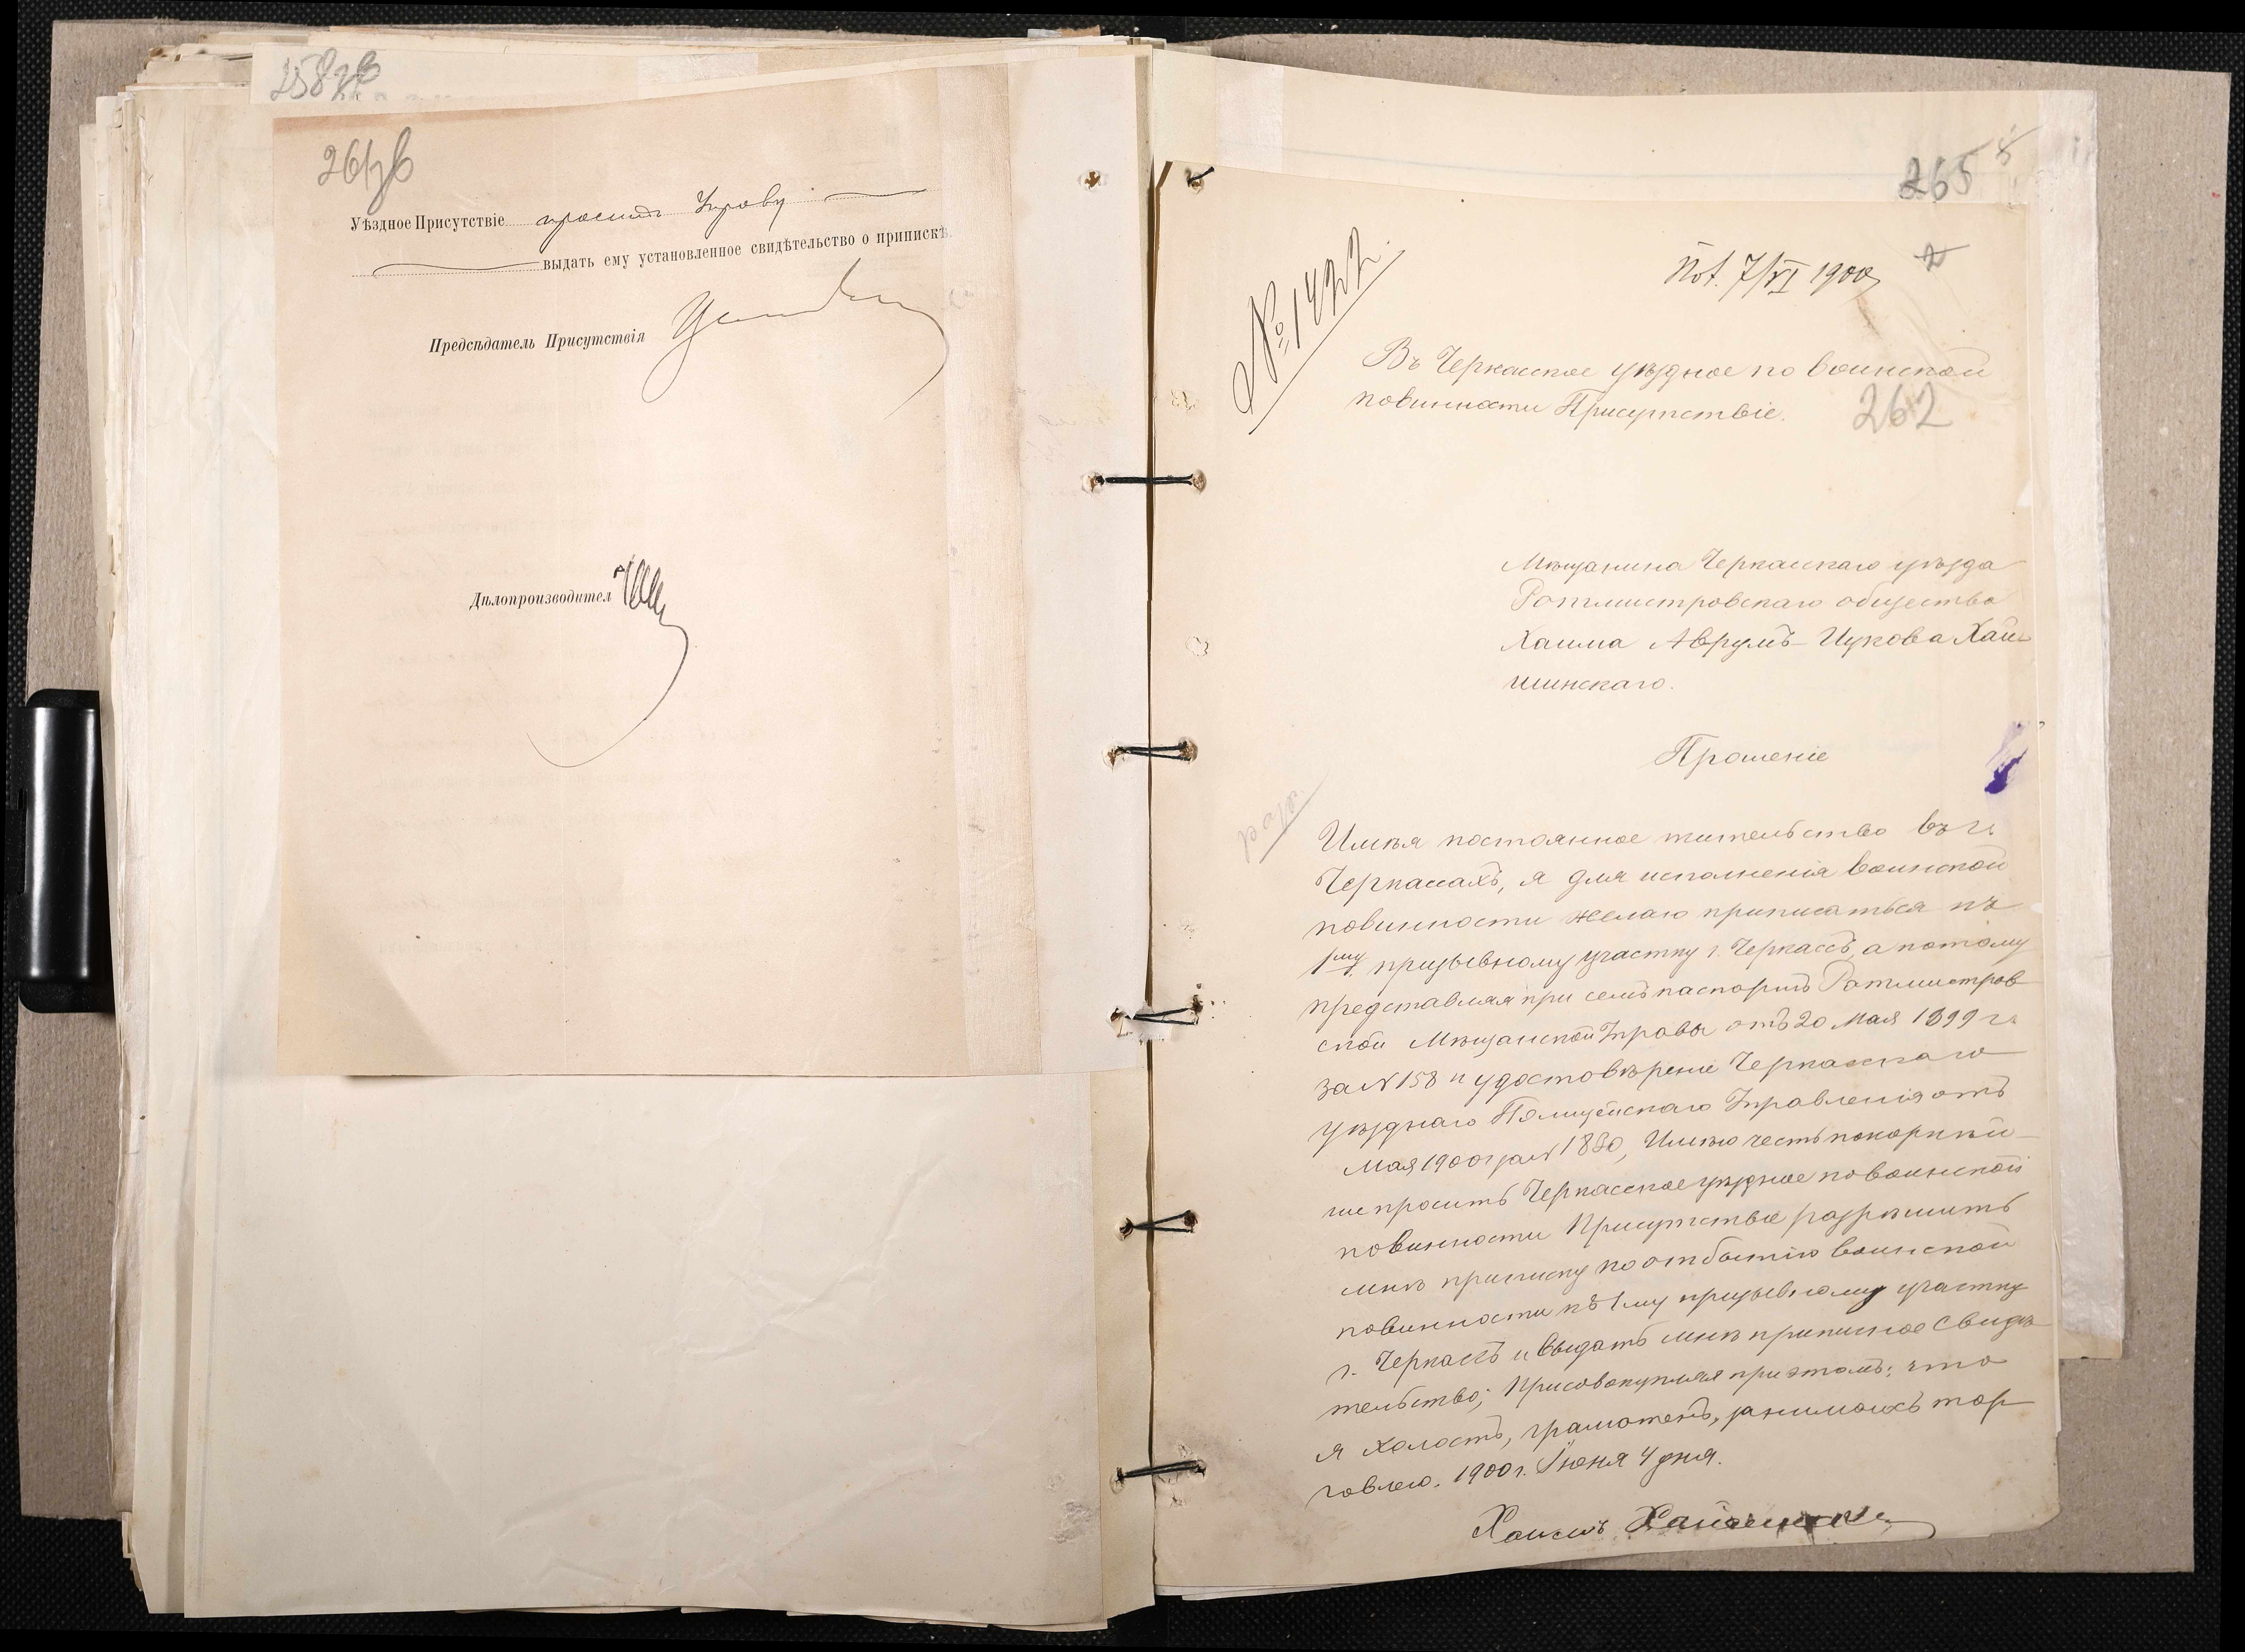 258
261
Уѣздное Присутствіе проситъ Управу
выдать ему установленное свидѣтельство о припискѣ.
Предсѣдатель Присутствія
Дѣлопроизводител
265
№ 1422
Пол. 7/VI 1900
Въ Черкасское уѣздное по воинской
повинности Присутствіе.
262
Мѣщанина Черкасскаго уѣзда
Ротмистровскаго общества
Хаима Аврумъ-Ицкова Хай
шинскаго.
Прошеніе
разр.
Имѣя постоянное жительство въ г.
Черкассахъ, я для исполненія воинской
повинности желаю приписаться къ
1му призывному участку г. Черкассъ, а потому
представляя при семъ паспортъ Ратмистров
ской Мѣщанской Управы отъ 20 Мая 1899 г.
за N 158 и удостовѣреніе Черкасскаго
уѣзднаго Полицейскаго Управленія отъ
Мая 1900 г за N 1880, Имѣю честь покорнѣй-
ше просить Черкасское уѣздное по воинской
повинности Присутствіе разрѣшить
мнѣ приписку по отбытію воинской
повинности къ 1му призывному участку
г. Черкассъ и выдать мнѣ приписное Свидѣ
тельство; Присовокупляя при этомъ: что
я холостъ, грамотенъ, занимаюсь тор
говлею. 1900 г. Іюня 4 дня.
Хаимъ